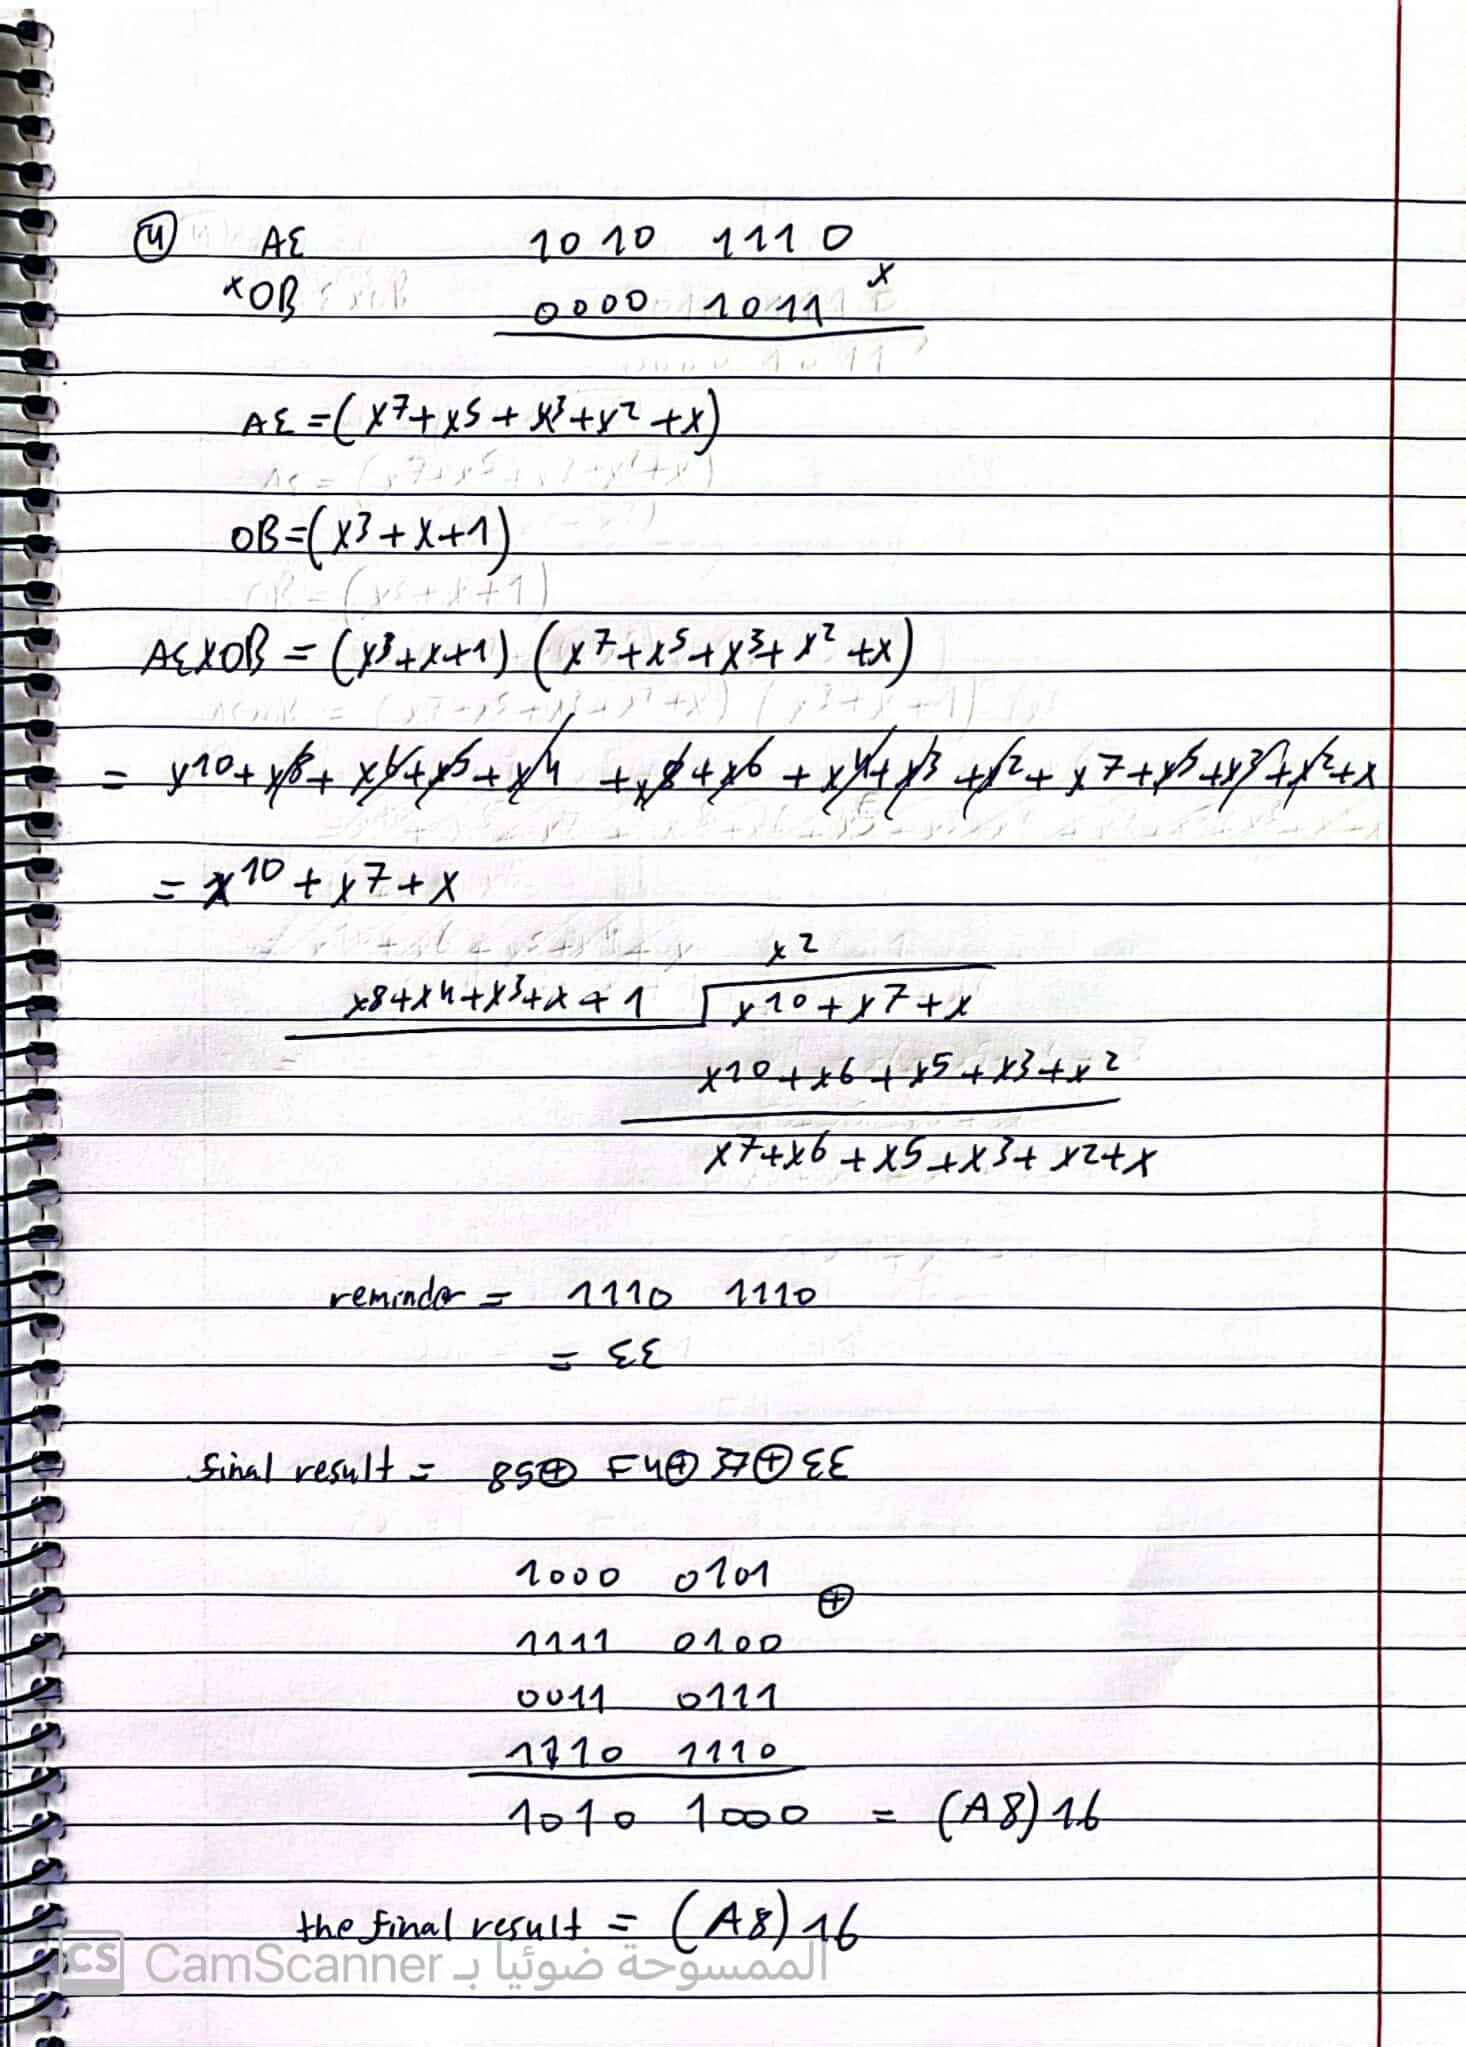 ④ AE 1010 1110
×0B 0000 1011 ×
AE = (x⁷+x⁵+x³+x²+x)
0B = (x³+x+1)
AE×0B = (x³+x+1) (x⁷+x⁵+x³+x²+x)
= x¹⁰+x⁸+x⁶+x⁵+x⁴+x⁸+x⁶+x⁴+x³+x²+x⁷+x⁵+x³+x²+x
= x¹⁰+x⁷+x
x²
x⁸+x⁴+x³+x+1 x¹⁰+x⁷+x
x¹⁰+x⁶+x⁵+x³+x²
x⁷+x⁶+x⁵+x³+x²+x
reminder = 1110 1110
= EE
final result = 85⊕ F4⊕ 37⊕ EE
1000 0101 ⊕
1111 0100
0011 0111
1110 1110
1010 1000 = (A8)16
the final result = (A8)16
CS CamScanner الممسوحة ضوئيا بـ